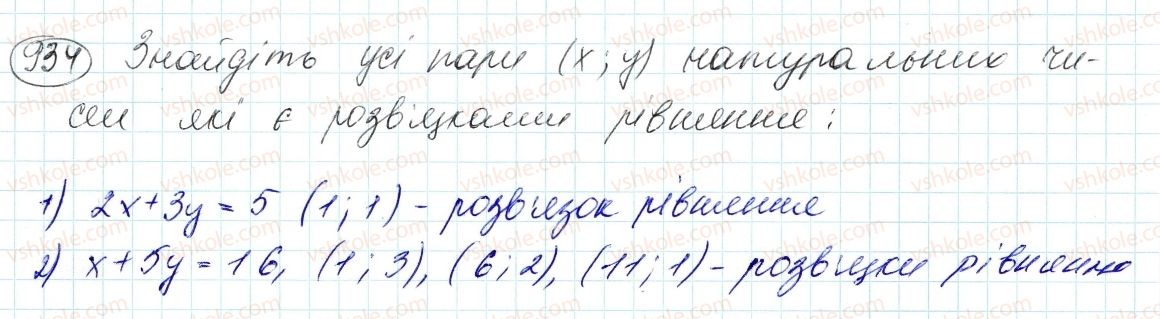 934 Знайдіть усі пари (x; y) натуральних чи-
сел які є розв'язками рівняння:
1) 2x+3y=5 (1; 1) - розв'язок рівняння
2) x+5y=16, (1; 3), (6; 2), (11; 1) - розв'язки рівняння